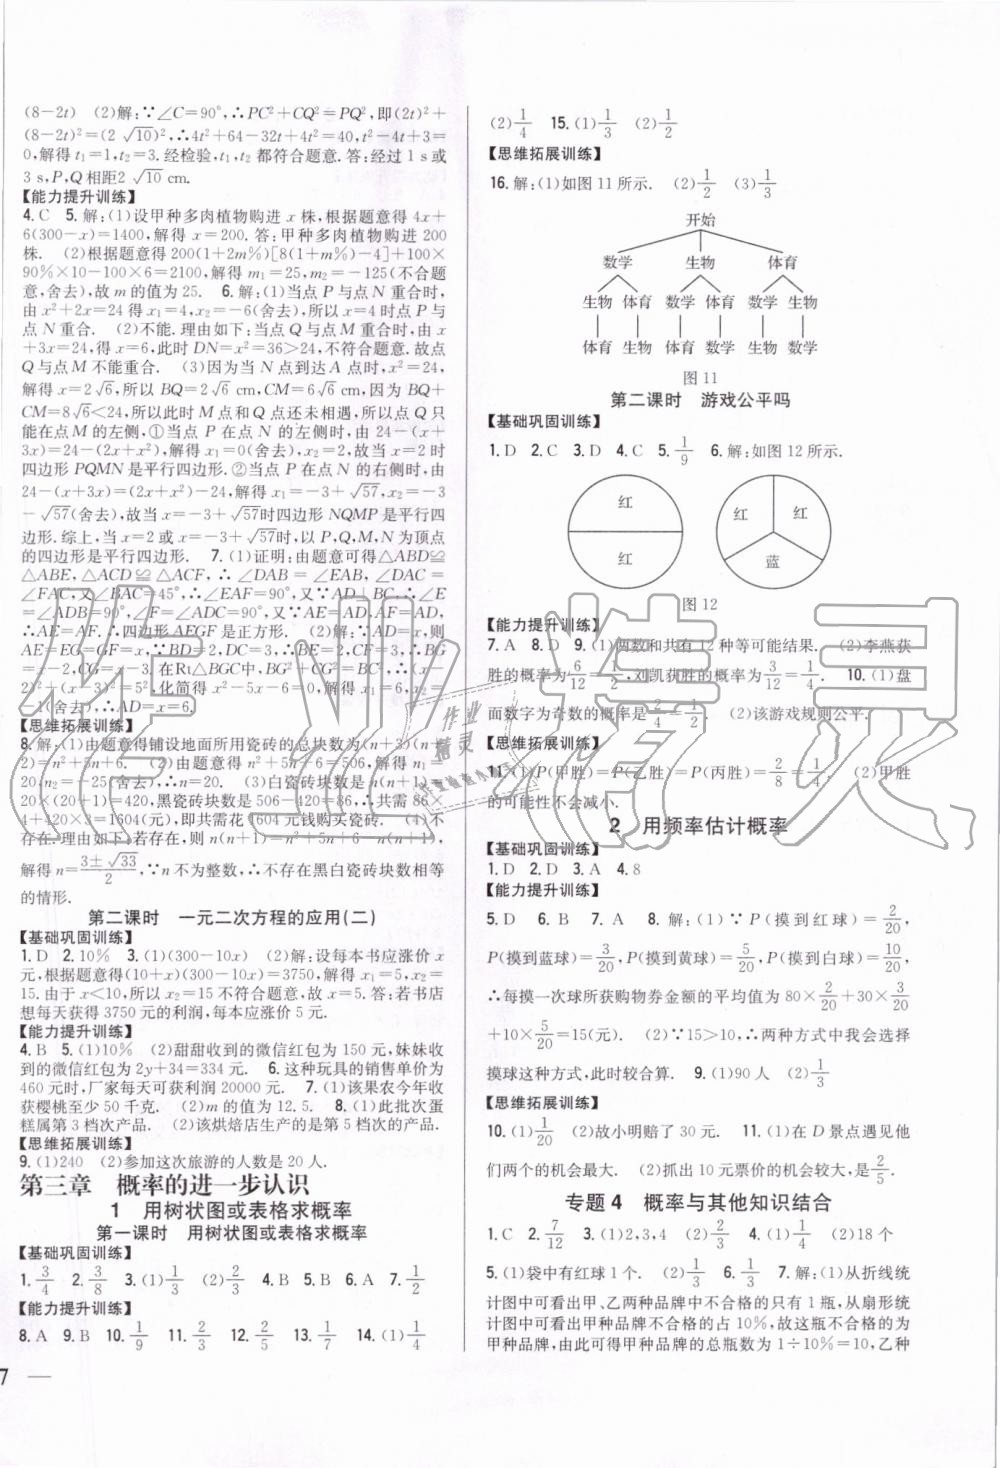 (8-2t)　(2)解:∵∠C=90°,∴PC²+CQ²=PQ²,即(2t)²+
(8-2t)²=(2√10)²,∴4t²+64-32t+4t²=40,t²-4t+3=
0,解得 t₁=1,t₂=3.经检验,t₁,t₂ 都符合题意.答:经过 1 s或
3 s,P,Q 相距2√10 cm.
【能力提升训练】
4.C　5.解:(1)设甲种多肉植物购进 x 株,根据题意得 4x+
6(300-x)=1400,解得 x=200.答:甲种多肉植物购进 200
株.　(2)根据题意得 200(1+2m%)[8(1+m%)-4]+100×
90%×10-100×6=2100,解得 m₁=25,m₂=-125(不合题
意,舍去),故 m 的值为 25.　6.解:(1)当点 P 与点 N 重合时,
由 x²+2x=24 得 x₁=4,x₂=-6(舍去),所以 x=4 时点 P 与
点 N 重合.　(2)不能.理由如下:当点 Q 与点 M 重合时,由 x
+3x=24,得 x=6,此时 DN=x²=36>24,不符合题意.故点
Q 与点 M 不能重合.　(3)因为当点 N 到达 A 点时,x²=24,
解得 x=2√6,所以 BQ=2√6 cm,CM=6√6 cm,因为 BQ+
CM=8√6<24,所以此时 M 点和 Q 点还未相遇,所以点 Q 只
能在点 M 的左侧,①当点 P 在点 N 的左侧时,由 24-(x+
3x)=24-(2x+x²),解得 x₁=0(舍去),x₂=2,故当 x=2 时
四边形 PQMN 是平行四边形.②当点 P 在点 N 的右侧时,由
24-(x+3x)=(2x+x²)-24,解得 x₁=-3+√57,x₂=-3
-√57(舍去),故当 x=-3+√57时四边形 NQMP 是平行四
边形.综上,当 x=2 或 x=-3+√57时,以 P,Q,M,N 为顶点
的四边形是平行四边形.　7.(1)证明:由题意可得△ABD≌
△ABE,△ACD≌△ACF,∴∠DAB=∠EAB,∠DAC=
∠FAC,又∠BAC=45°,∴∠EAF=90°,又∵AD⊥BC,∴∠E
=∠ADB=90°,∠F=∠ADC=90°.又∵AE=AD,AF=AD,
∴AE=AF.∴四边形 AEGF 是正方形.　(2)解:∵AD=x,则
AE=EG=GF=x.∵BD=2,DC=3,∴BE=2,CF=3,∴BG
=x-2,CG=x-3.在Rt△BGC中,BG²+CG²=BC²,∴(x-
2)²+(x-3)²=5²,化简得 x²-5x-6=0,解得 x₁=6,x₂=
-1(舍去),∴AD=x=6.
【思维拓展训练】
8.解:(1)由题意得铺设地面所用瓷砖的总块数为(n+3)(n+
2)=n²+5n+6.　(2)根据题意得 n²+5n+6=506,解得 n₁=
20,n₂=-25(舍去),∴n=20.　(3)白瓷砖块数是 n(n+1)=
20×(20+1)=420,黑瓷砖块数是 506-420=86,共需 86×
4+420×3=1604(元),即共需花 1604 元钱购买瓷砖.　(4)不
存在.理由如下:若存在,则有 n(n+1)=(n²+5n+6)-n(n+1),
解得 n=(3±√33)/2,∵n 不为整数,∴不存在黑白瓷砖块数相等
的情形.
第二课时　一元二次方程的应用(二)
【基础巩固训练】
1.D　2.10%　3.(1)(300-10x)　(2)解:设每本书应涨价 x
元,根据题意得(10+x)(300-10x)=3750,解得 x₁=5,x₂=
15.由于 x<10,所以 x₂=15 不符合题意,故 x=5.答:若书店
想每天获得 3750 元的利润,每本应涨价 5 元.
【能力提升训练】
4.B　5.(1)10%　(2)甜甜收到的微信红包为 150 元,妹妹收
到的微信红包为 2y+34=334 元.　6.这种玩具的销售单价为
460 元时,厂家每天可获利润 20000 元.　7.(1)该果农今年收
获樱桃至少 50 千克.　(2)m 的值为 12.5.　8.(1)此批次蛋
糕属第 3 档次产品.　(2)该烘焙店生产的是第 5 档次的产品.
【思维拓展训练】
9.(1)240　(2)参加这次旅游的人数是 20 人.
第三章　概率的进一步认识
1　用树状图或表格求概率
第一课时　用树状图或表格求概率
【基础巩固训练】
1.3/4　2.3/8　3.(1)1/3　(2)2/3　4.B　5.B　6.A　7.1/2
【能力提升训练】
8.A　9.B　10.1/9　11.2/3　12.2/5　13.1/7　14.(1)1/4
7
(2)1/4　15.(1)1/3　(2)1/2
【思维拓展训练】
16.解:(1)如图 11 所示.　(2)1/2　(3)1/3
开始
数学　生物　体育
生物　体育　数学　体育　数学　生物
体育　生物　体育　数学　生物　数学
图 11
第二课时　游戏公平吗
【基础巩固训练】
1.D　2.C　3.D　4.C　5.1/9　6.解:如图 12 所示.
红　红　红
红　蓝
图 12
【能力提升训练】
7.A　8.D　9.(1)两数和共有 12 种等可能结果.　(2)李燕获
胜的概率为6/12=1/2,刘凯获胜的概率为3/12=1/4.　10.(1)盘
面数字为奇数的概率是2/4=1/2.　(2)该游戏规则公平.
【思维拓展训练】
11.(1)P(甲胜)=P(乙胜)=P(丙胜)=2/8=1/4.　(2)甲胜
的可能性不会减小.
2　用频率估计概率
【基础巩固训练】
1.D　2.D　3.A　4.8
【能力提升训练】
5.D　6.B　7.A　8.解:(1)∵P(摸到红球)=2/20,
P(摸到蓝球)=3/20,P(摸到黄球)=5/20,P(摸到白球)=10/20,
∴每摸一次球所获购物券金额的平均值为 80×2/20+30×3/20
+10×5/20=15(元).　(2)∵15>10,∴两种方式中我会选择
摸球这种方式,此时较合算.　9.(1)90人　(2)1/3
【思维拓展训练】
10.(1)1/20　(2)故小明赔了 30 元.　11.(1)在 D 景点遇见他
们两个的机会最大.　(2)抓出 10 元票价的机会较大,是2/5.
专题 4　概率与其他知识结合
1.C　2.7/12　3.(1)2,3,4　(2)2/3　4.(1)1/4　(2)18 个
5.(1)袋中有红球 1 个.　(2)1/3　6.1/3　7.解:(1)从折线统
计图中可看出甲、乙两种品牌中不合格的只有 1 瓶,从扇形统
计图中可看出甲种品牌不合格的占 10%,故这瓶不合格的为
甲种品牌,由此可得甲种品牌的总瓶数为 1÷10%=10,乙种
作业精灵
作业
精灵